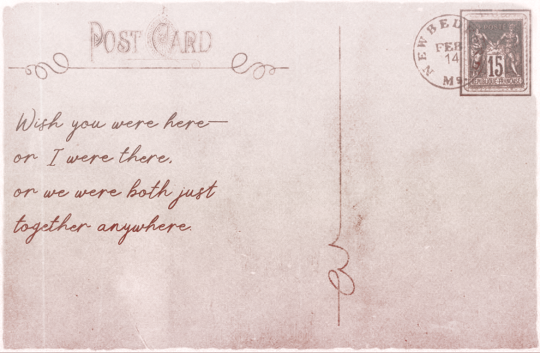 POST CARD
NEW BED
FEB
14
Ms
15
REPUBLIQUE FRANCAISE
Wish you were here—
or I were there,
or we were both just
together anywhere.